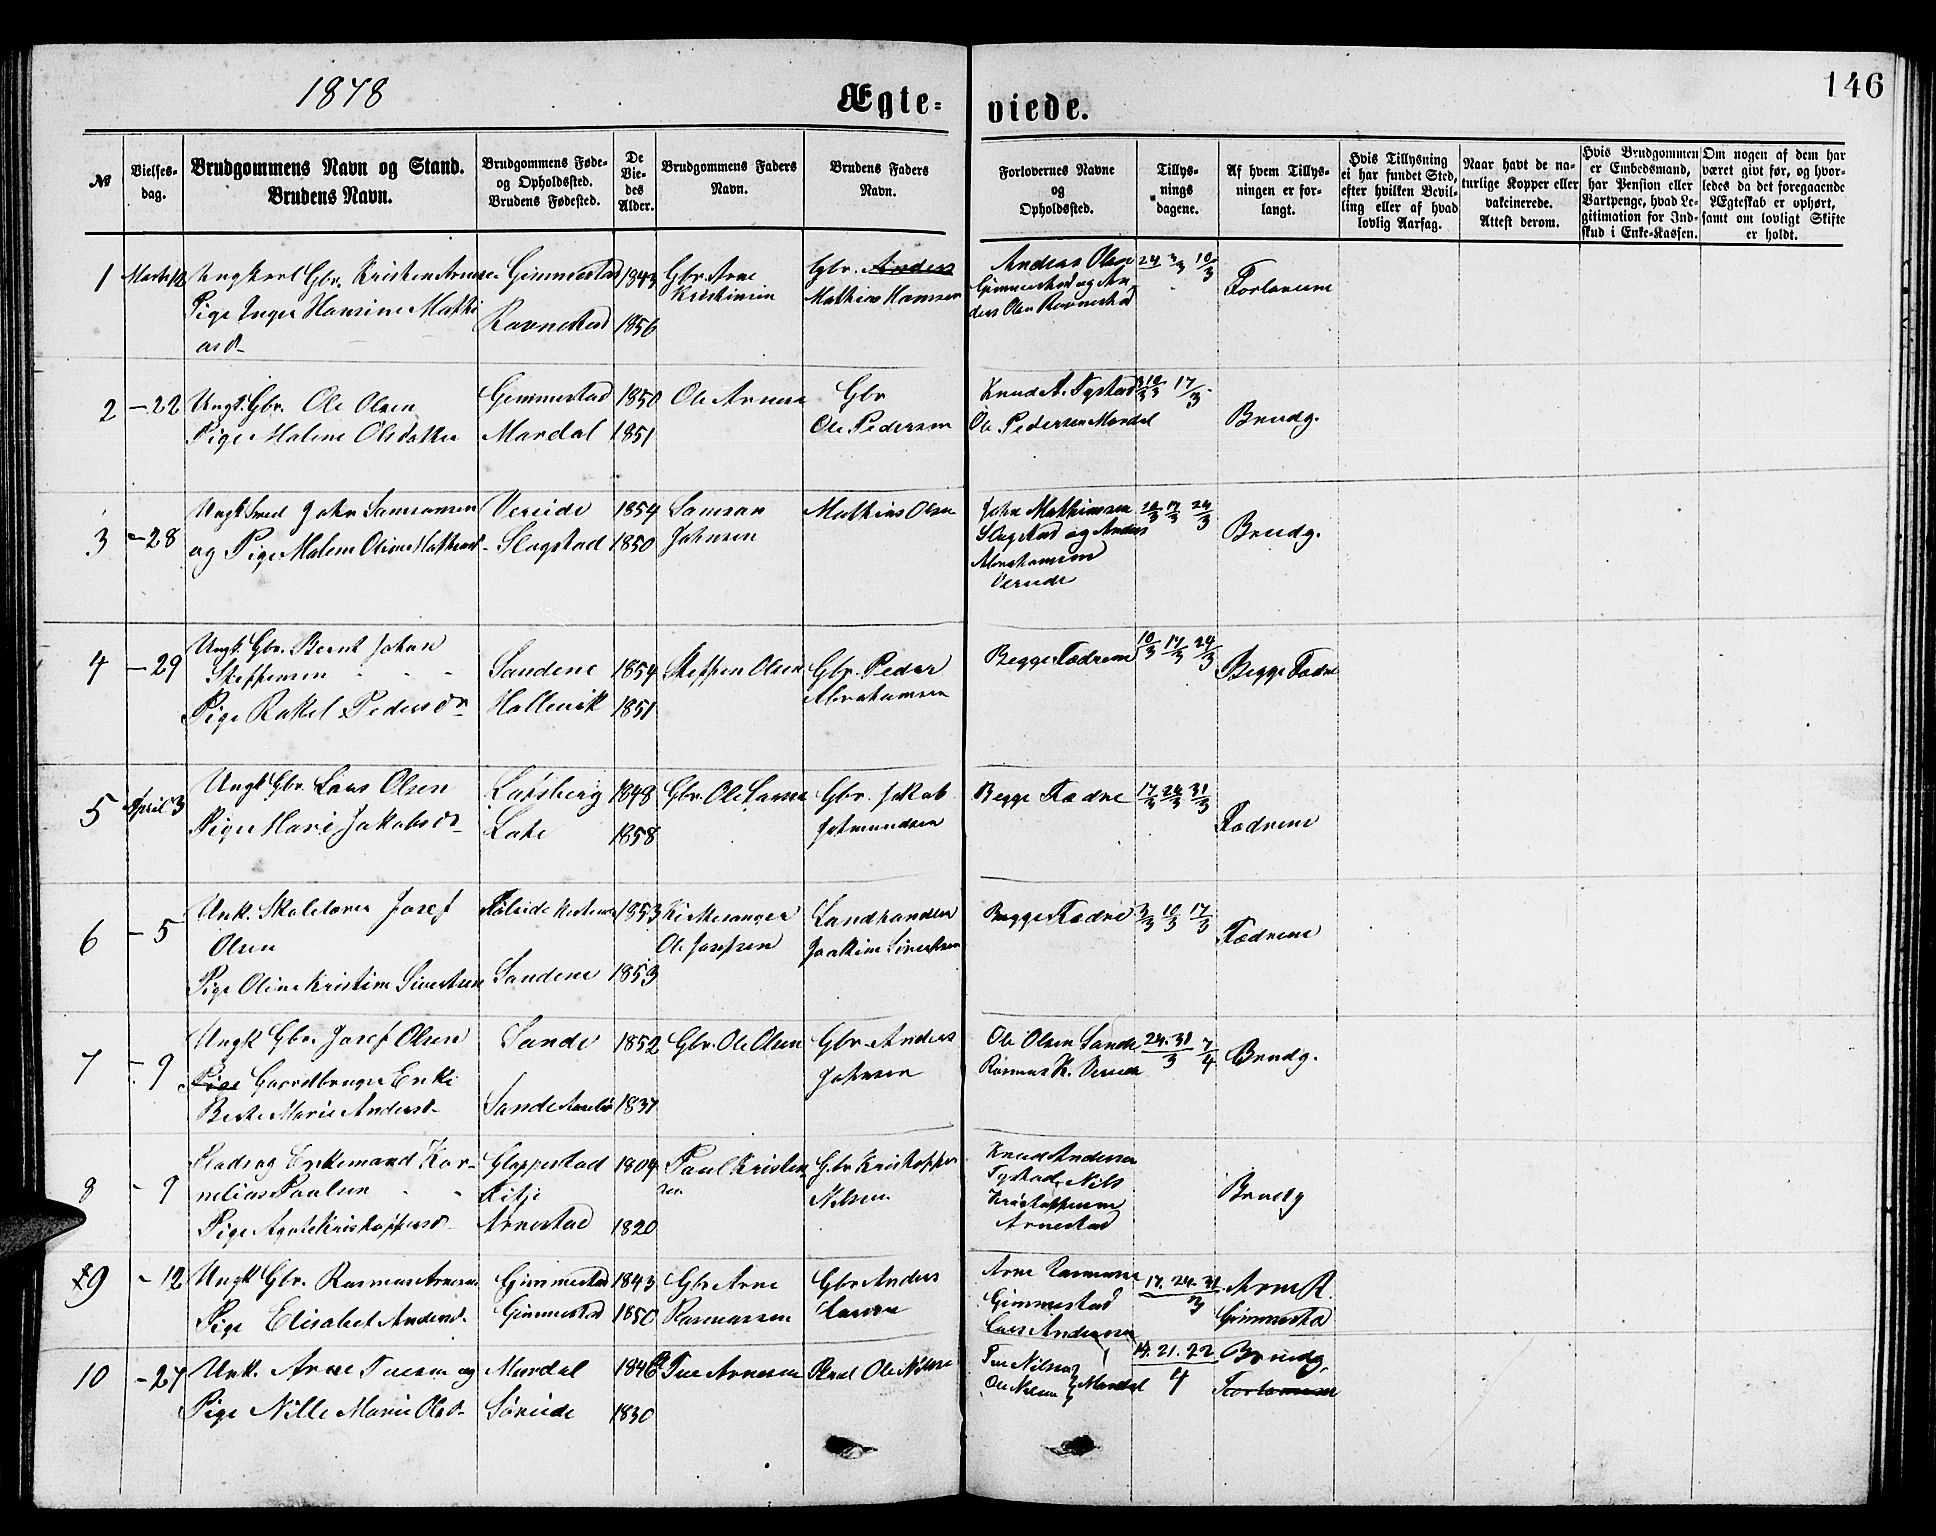 1878
Ægte-
viede.
146
№
Vielses-
dag.
Brudgommens Navn og Stand.
Brudens Navn.
Brudgommens Føde-
og Opholdssted.
Brudens Fødested.
De
Vie-
des
Alder.
Brudgommens Faders
Navn.
Brudens Faders
Navn.
Forlovernes Navne
og
Opholdssted.
Tillys-
nings
dagene.
Af hvem Tillys-
ningen er for-
langt.
Hvis Tillysning
ei har fundet Sted,
efter hvilken Bevil-
ling eller af hvad
lovlig Aarsag.
Naar havt de na-
turlige Kopper eller
vakcinerede.
Attest derom.
Hvis Brudgommen
er Embedsmand,
har Pension eller
Vartpenge, hvad Le-
gitimation for Ind-
skud i Enke-Kassen.
Om nogen af dem har
været givt før, og hvor-
ledes da det foregaaende
Ægteskab er ophørt,
samt om lovligt Skifte
er holdt.
1
Ungkarl Gbr. Kristen Arnesen
Gimmestad
1843
Gbr. Arne
Kristensen
Gbr. Anders
Mathias Hansen
Andreas Olsen
Gimmestad og An
ders Olsen Ravnestad
24 3/3 10/3
Forloverne
Pige Inger Hansine Mathi
asd
Ravnestad
1856
2
- 22
Ungk. Gbr. Ole Olsen
Gimmestad
1850
Ole Arnesen
Gbr
Ole Pedersen
Knud A. Tystad
Ole Pedersen Mardal
3/3 10/3 17/3
Brudg.
Pige Malene Olsdatter
Mardal
1851
3
- 28
Ungk Smed John Samsonsen
Vereide
1854
Samson
Johnsen
Mathias Olsen
John Mathiassen
Slagstad og Anders
Abrahamsen
Vereide
17/3 24/3
Brudg.
og Pige Malene Oline Mathiasd
Slagstad
1850
4
- 29
Ungk. Gbr. Bernt Johan
Steffensen
Sandene
1854
Steffen Olsen
Gbr. Peder
Abrahamsen
Begge Fædrene
10/3 17/3 24/3
Begge Fædre
Pige Rakel Pedersd
Hollevik
1851
5
April 3
Ungk Gbr. Lars Olsen
1848
Gbr. Ole Larsen
Gbr. Jakob
Begge Fædre
17/3 24/3 31/3
Fædrene
Pige Mari Jakobsd
Lote
1858
6
- 5
Unk. Skolelærer Josef
Olsen
1853
Kirkesanger
Ole Josefsen
Landhandler
Joakim Sivertsen
Begge Fædre
3/3 10/3 17/3
Fædrene
Pige Oline Kristine Sivertsen
Sandene
1853
7
- 9
Ungk Gbr. Josef Olsen
Sande
1852
Gbr. Ole Olsen
Gbr. Anders
Johnsen
Ole Olsen Sande
Rasmus K. Vereide
24. 31/3 7/4
Brudg.
Pige Gaardbruger Enke
Berte Marie Andersd
Sande
1837
8
- 9
Enkemand Kor-
nelius Paulsen
Gloppestad
1804
Paul Kristen
sen
Gbr Kristoffer
Nilsen
Knud Andersen
Tystad, Nils
Kristoffersen
Arnestad
Brudg
Pige Agate Kristoffersd
Arnestad
1820
9
- 12
Ungk Gbr. Rasmus Arnesen
Gimmestad
1843
Gbr Arne
Rasmussen
Gbr Anders
Larsen
Arne Rasmussen
Gimmestad
Lars Andersen
17. 24. 31/3
Arne R.
Gimmestad
Pige Elisabet Andersd.
Gimmestad
1850
10
- 27
Unk. Arne Tuesen og
Mardal
1846
Tue Arnesen
Ole Nilsen
Tue Nilsen
Ole Nilsen Mardal
14. 21. 22/4
Brudg.
Forloverne
Pige Nille Marie Olsd
Søreide
1830